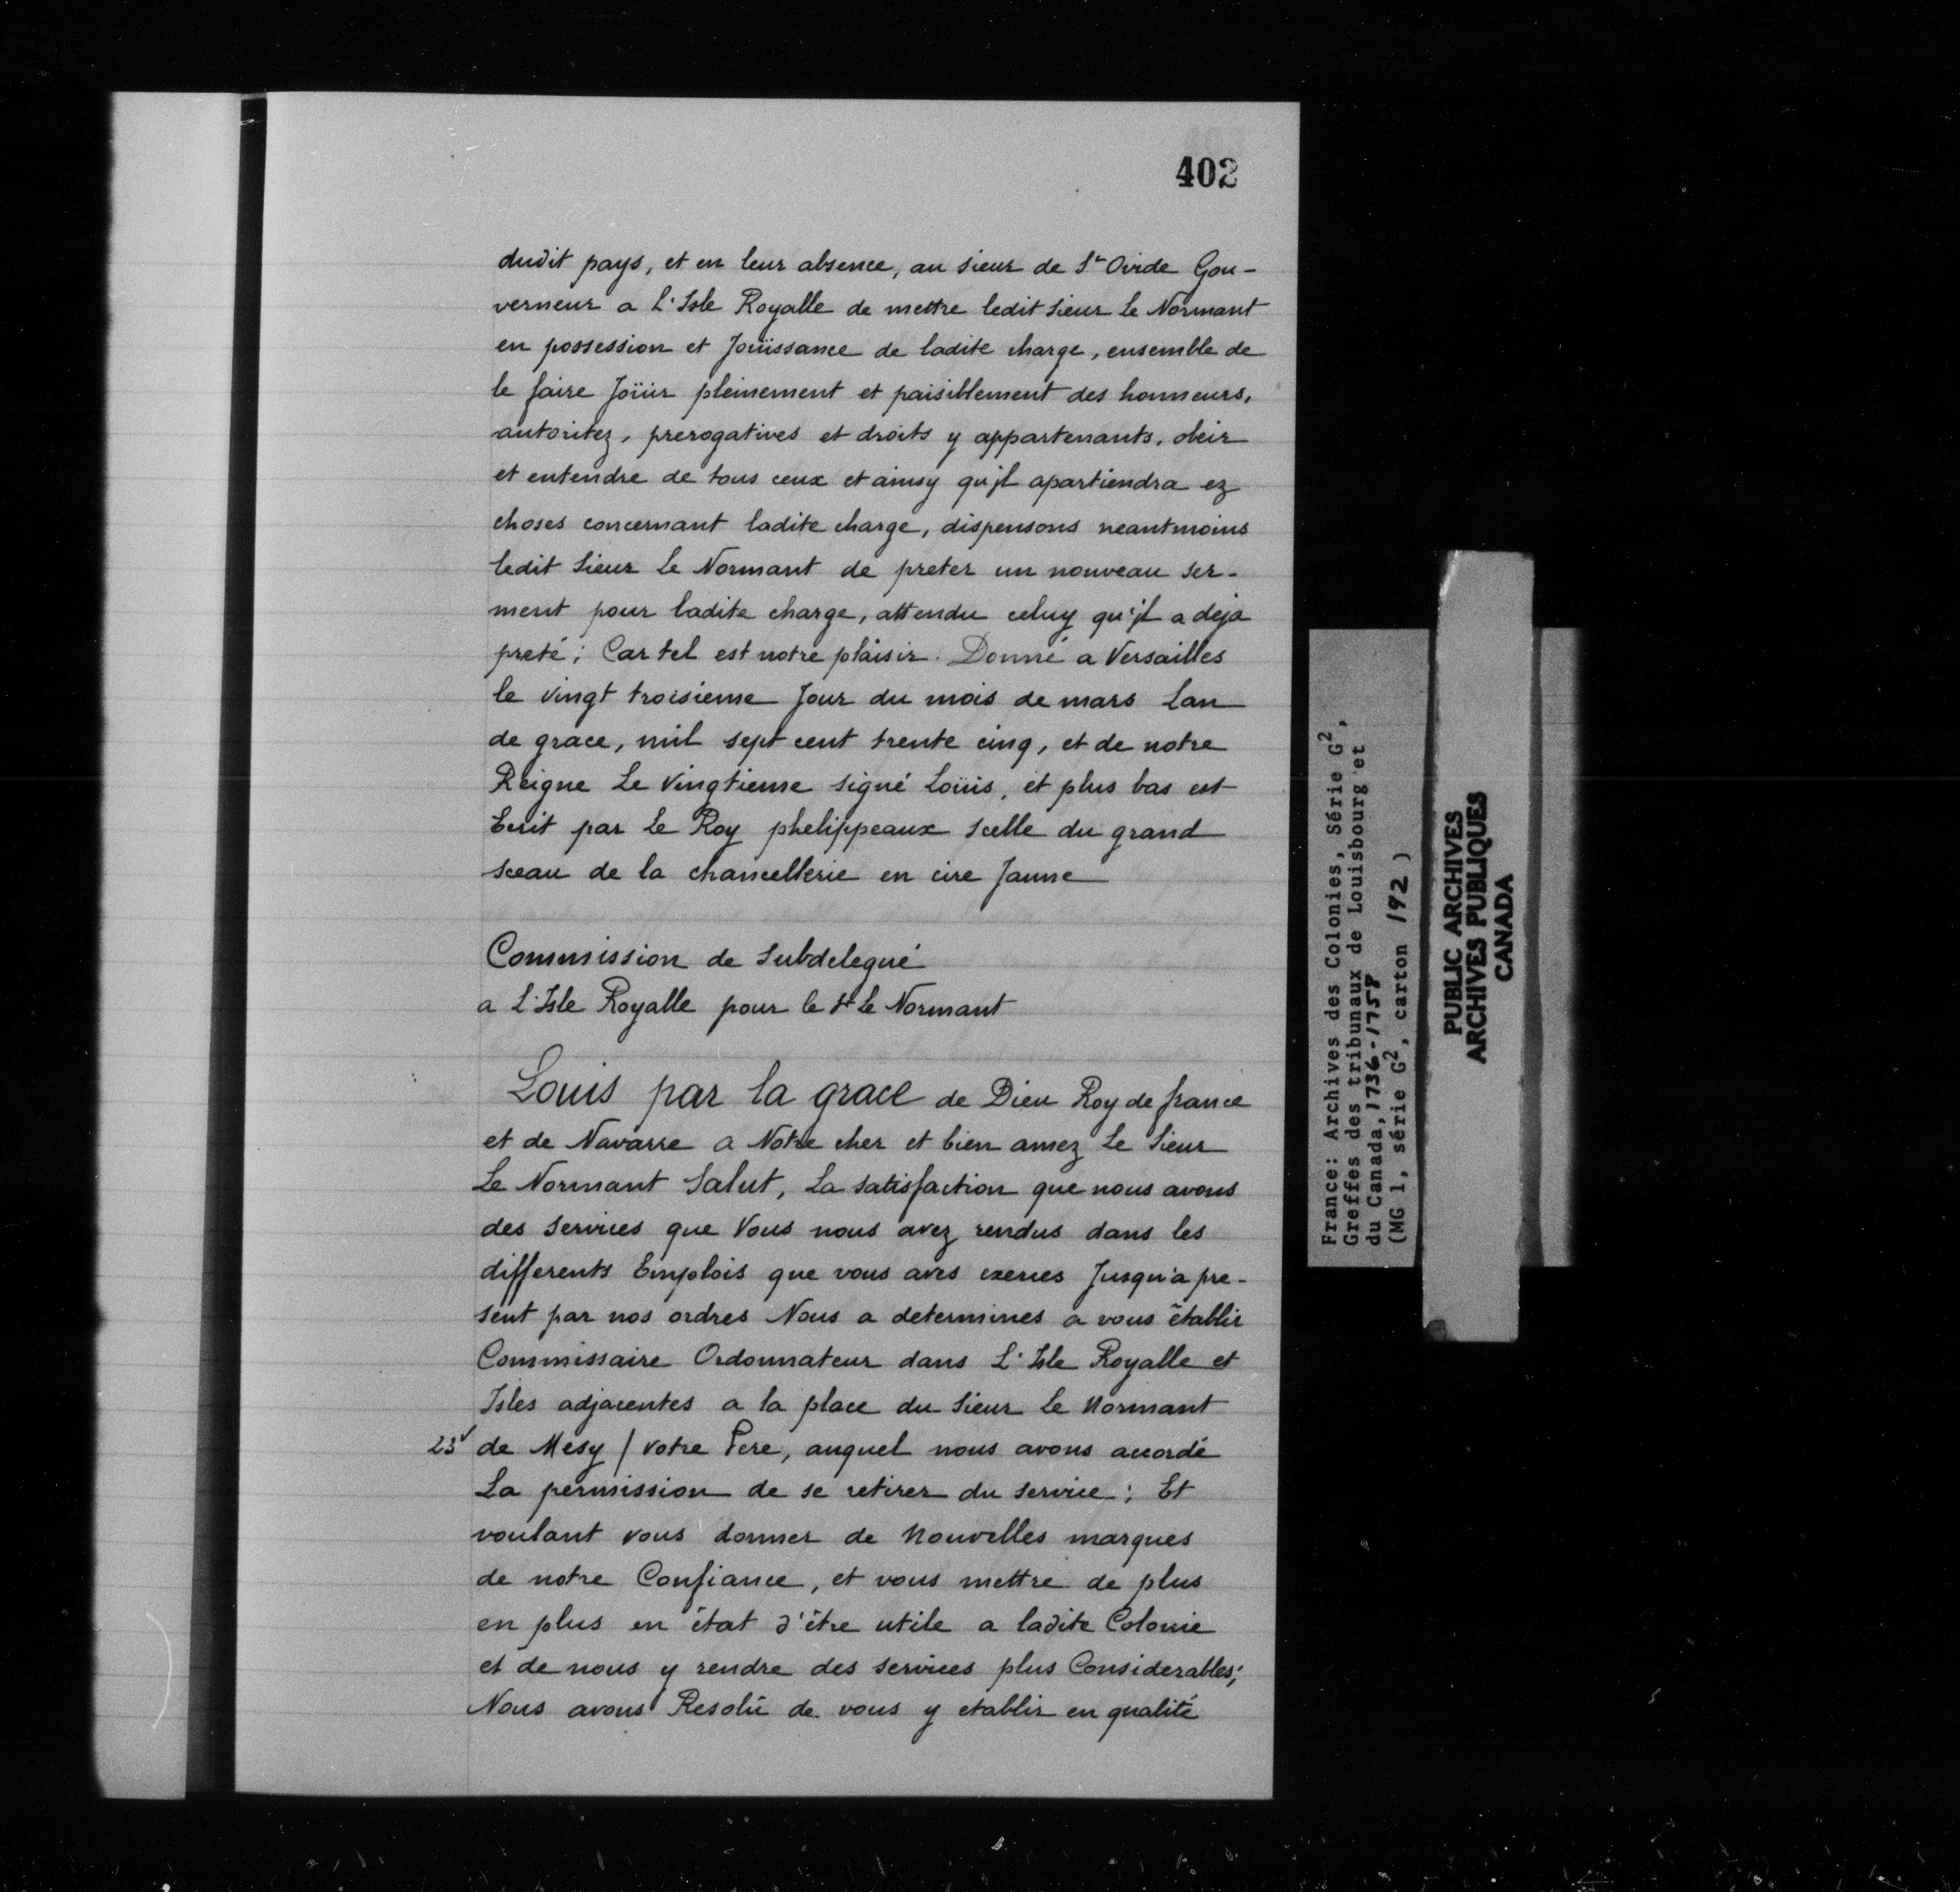 402
dudit pays, et en leur absence, au sieur de St Ovide Gou-
verneur a L'Isle Royalle de mettre ledit Sieur Le Normant
en possession et Joüissance de ladite charge, ensemble de
le faire Joüir pleinement et paisiblement des honneurs,
autoritez, prerogatives et droits y appartenants, obeir
et entendre de tous ceux et ainsy qu'jl apartiendra ez
choses concernant ladite charge, dispensons neantmoins
ledit Sieur Le Normant de preter un nouveau Ser-
ment pour ladite charge, attendu celuy qu'jl a deja
preté; Car tel est notre plaisir. Donné a Versailles
le vingt troisieme Jour du mois de mars Lan
de grace, mil sept cent trente cinq, et de notre
Reigne Le Vingtieme signé Loüis, et plus bas est
Ecrit par Le Roy phelippeaux scelle du grand
sceau de la chancellerie en cire Jaune
Commission de Subdelegué
a L'Isle Royalle pour le Sr Le Normant
Louis par la grace de Dieu Roy de france
et de Navarre a Notre cher et bien amez Le Sieur
Le Normant Salut, La satisfaction que nous avons
des Services que Vous nous avez rendus dans les
differents Emplois que vous aves exerces Jusqu'a pre-
sent par nos ordres Nous a determines a vous établir
Commissaire Ordonnateur dans L'Isle Royalle et
Isles adjacentes a la place du Sieur Le Normant
23v de Mesy / votre Pere, auquel nous avons accordé
La permission de se retirer du Service; Et
voulant vous donner de Nouvelles marques
de notre Confiance, et vous mettre de plus
en plus en état d'être utile a ladite Colonie
et de nous y rendre des services plus Considerables;
Nous avons Resolû de vous y etablir en qualité
France: Archives des Colonies, Série G2,
Greffes des tribunaux de Louisbourg et
du Canada, 1736-1758
(MG 1, série G2, carton 192)
PUBLIC ARCHIVES
ARCHIVES PUBLIQUES
CANADA